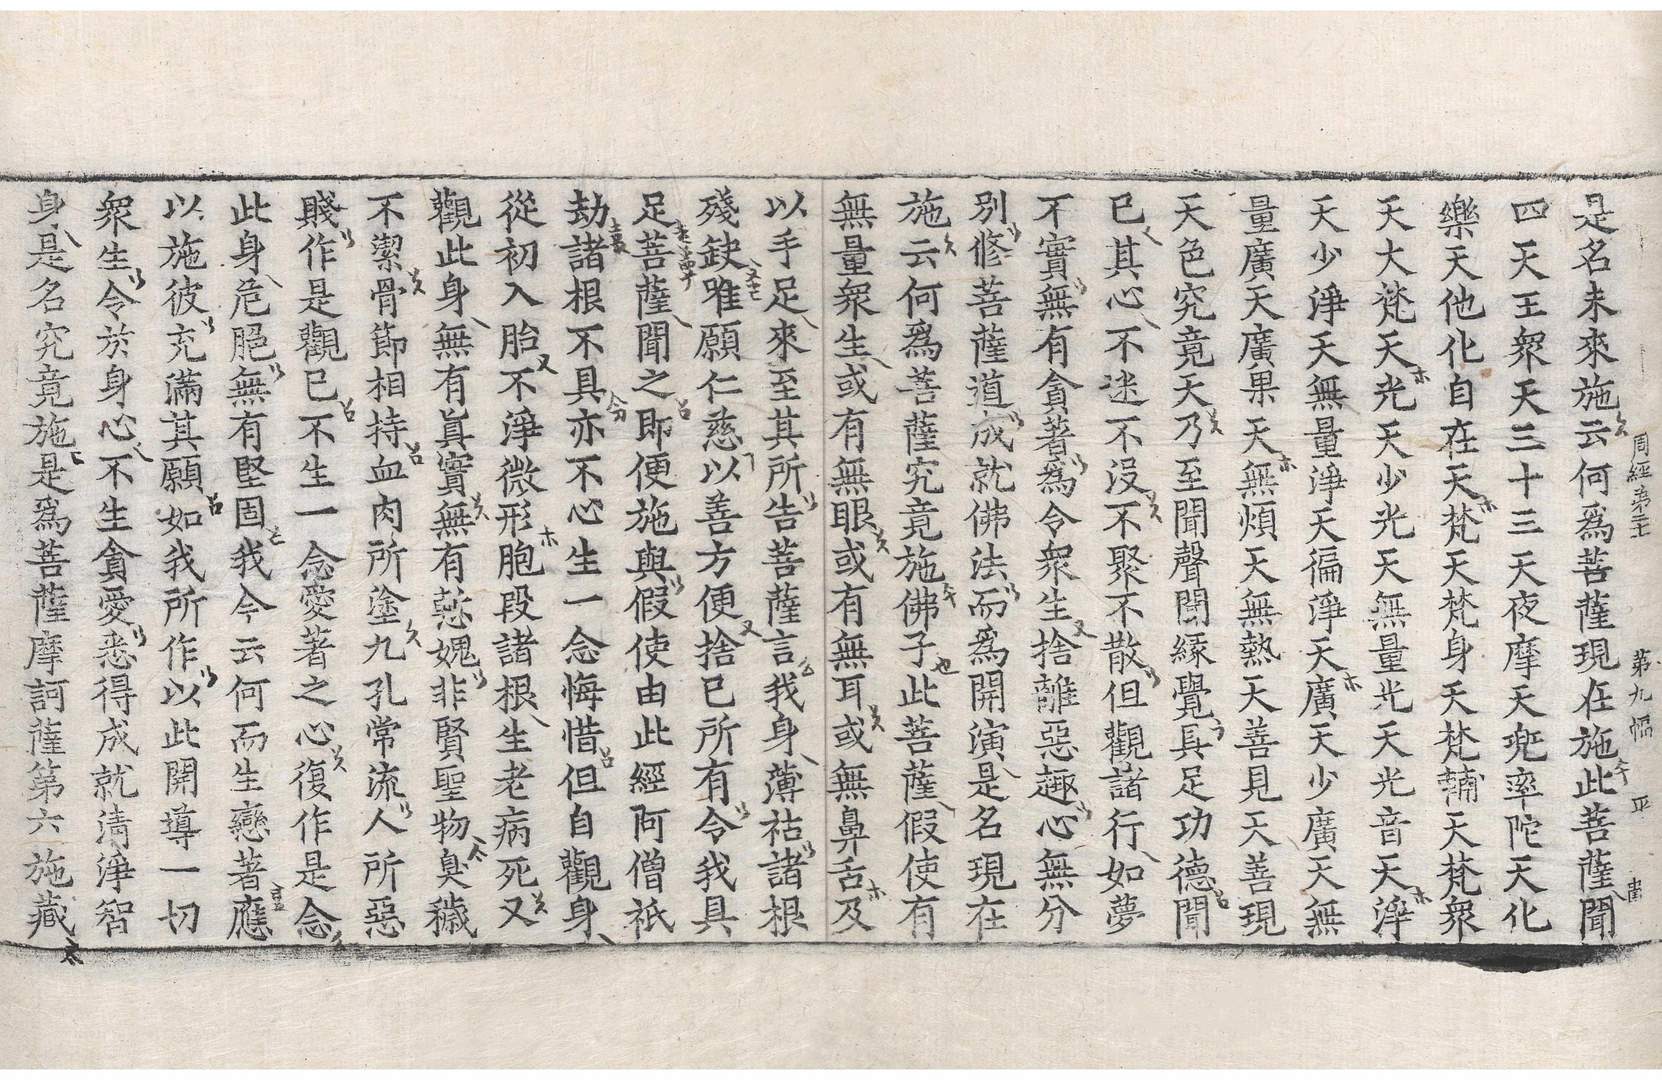 周經第二十 第九幅 平
是名未來施云何爲菩薩現在施此菩薩聞
四天王衆天三十三天夜摩天兜率陀天化
樂天他化自在天梵天梵身天梵輔天梵衆
天大梵天光天少光天無量光天光音天淨
天少淨天無量淨天徧淨天廣天少廣天無
量廣天廣果天無煩天無熱天善見天善現
天色究竟天乃至聞聲聞緣覺具足功德聞
已其心不迷不沒不聚不散但觀諸行如夢
不實無有貪著爲令衆生捨離惡趣心無分
別修菩薩道成就佛法而爲開演是名現在
施云何爲菩薩究竟施佛子此菩薩假使有
無量衆生或有無眼或有無耳或無鼻舌及
以手足來至其所告菩薩言我身薄祜諸根
殘缺唯願仁慈以善方便捨已所有令我具
足菩薩聞之即便施與假使由此經阿僧祇
劫諸根不具亦不心生一念悔惜但自觀身
從初入胎不淨微形胞段諸根生老病死又
觀此身無有眞實無有慙愧非賢聖物臭穢
不潔骨節相持血肉所塗九孔常流人所惡
賤作是觀已不生一念愛著之心復作是念
此身危脃無有堅固我今云何而生戀著應
以施彼充滿其願如我所作以此開導一切
衆生令於身心不生貪愛悉得成就淸淨智
身是名究竟施是爲菩薩摩訶薩第六施藏